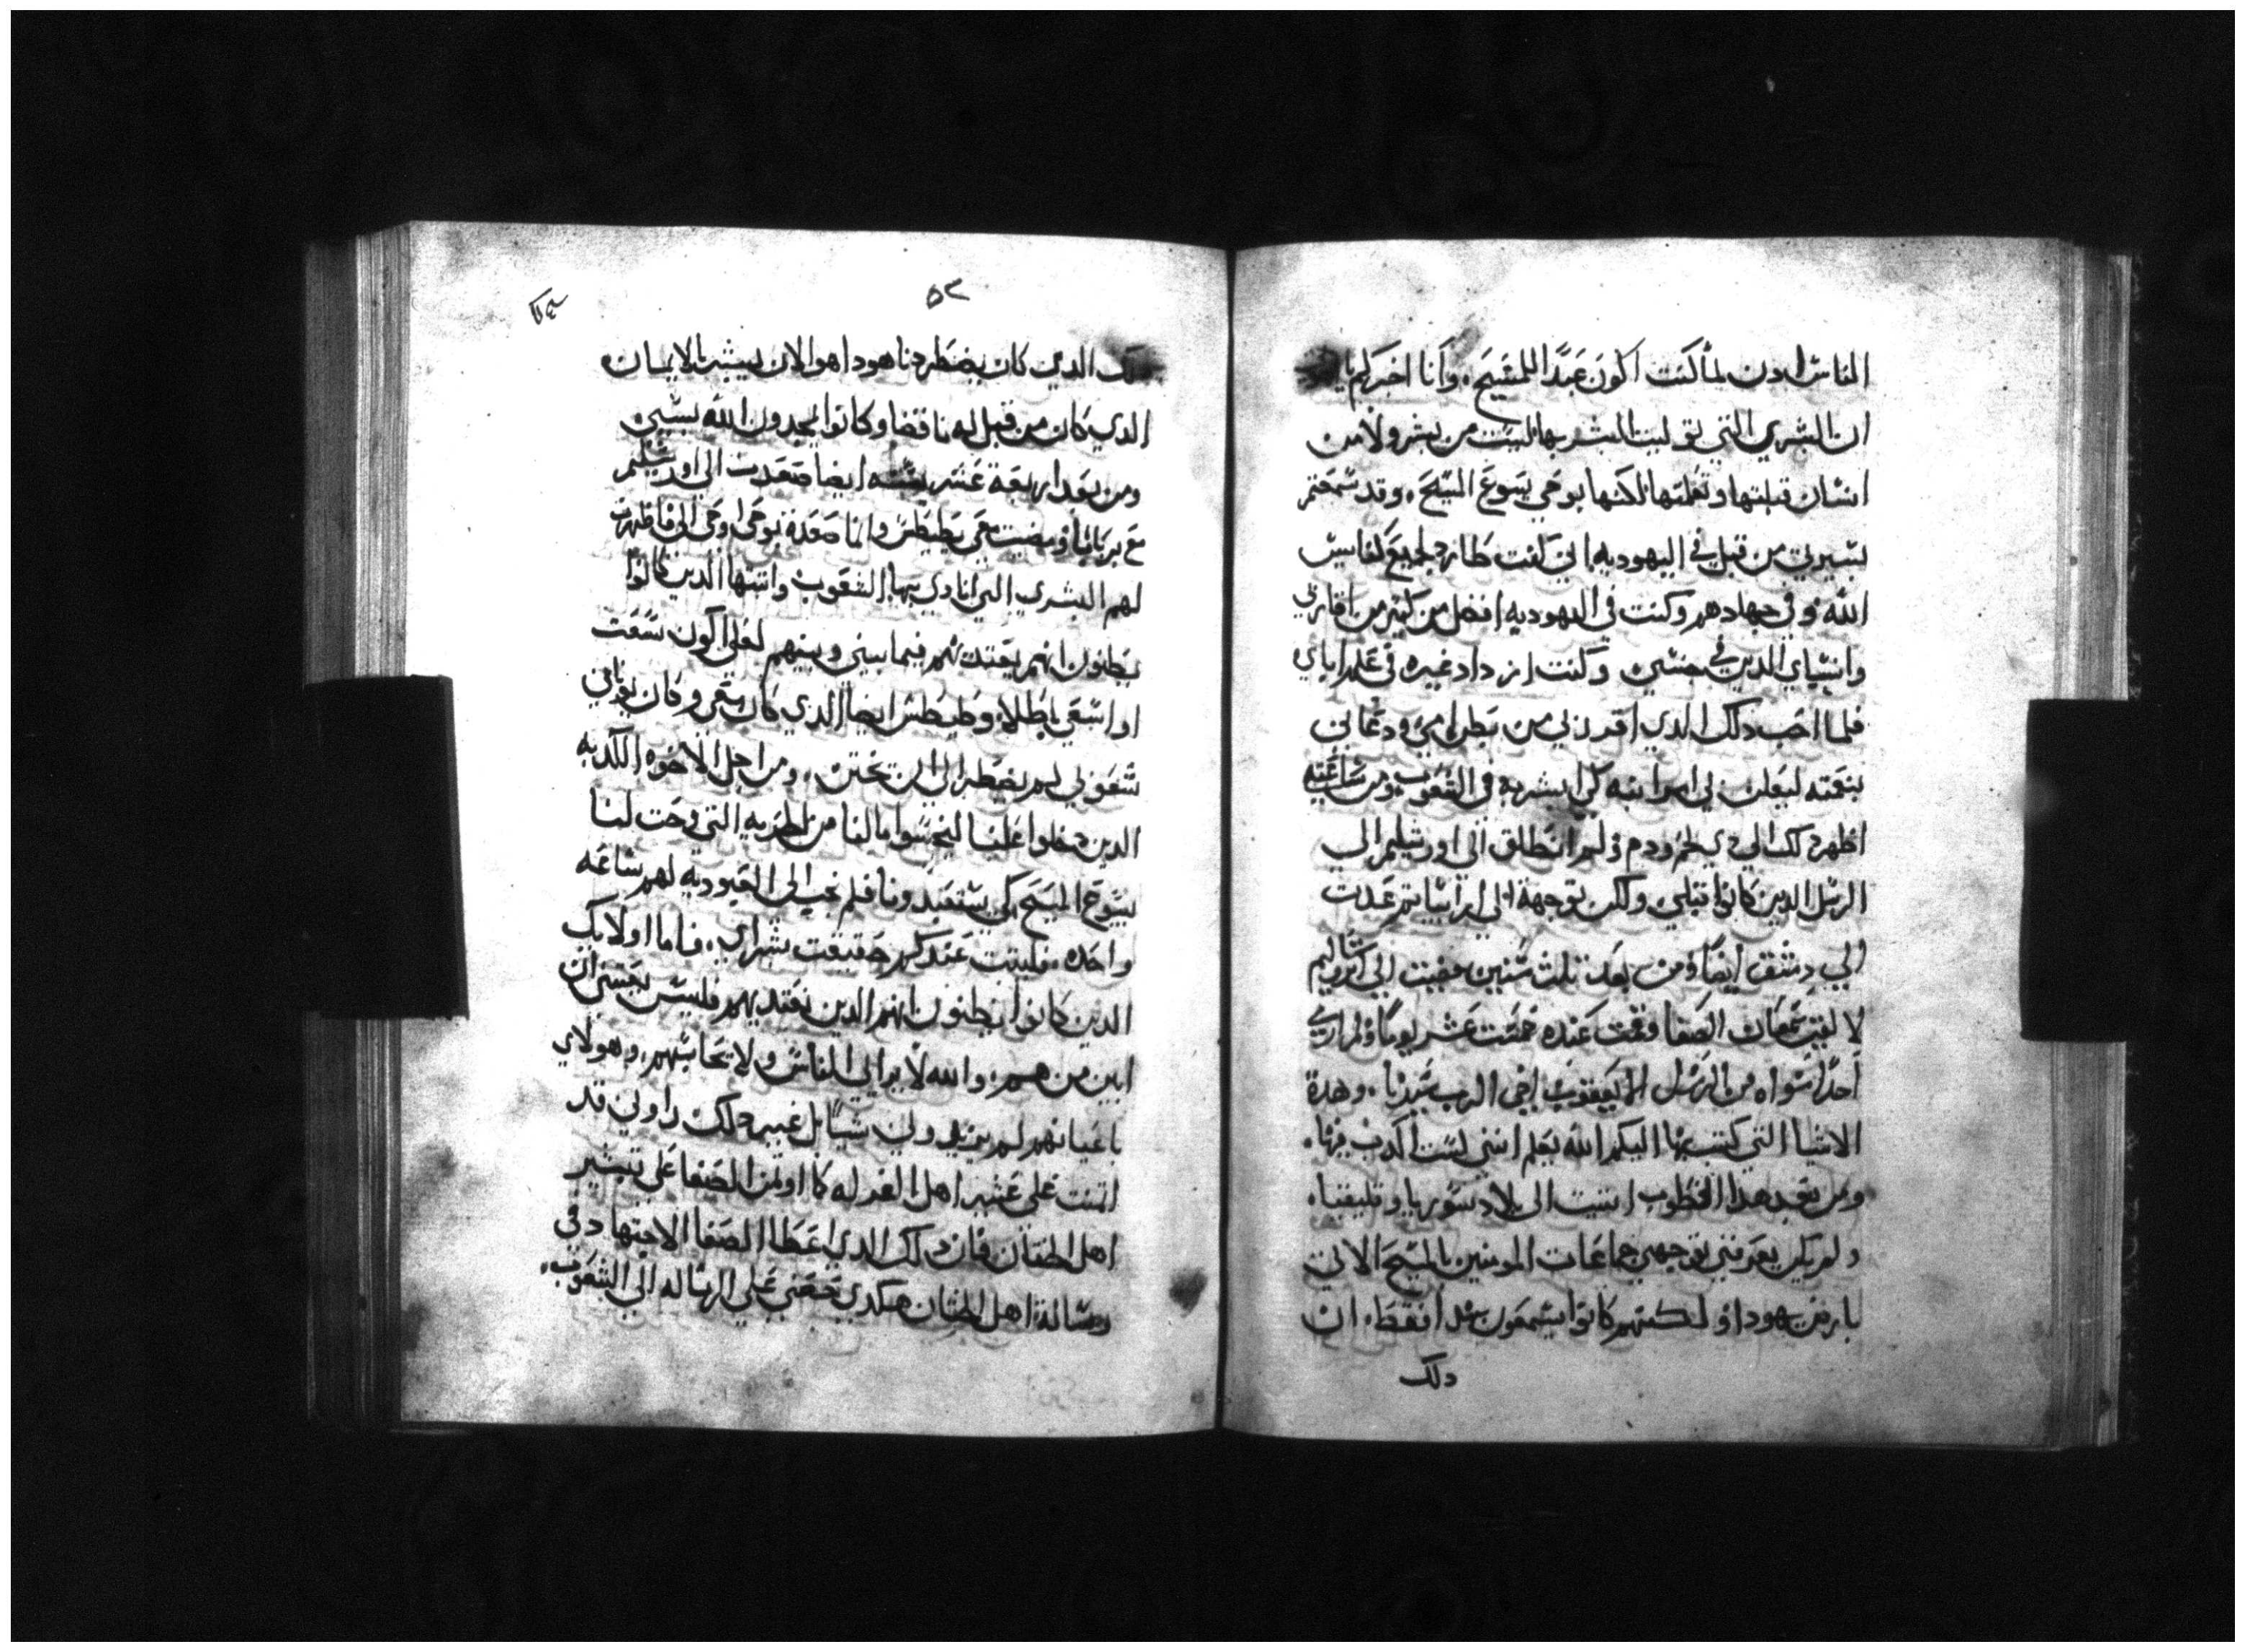 الناس ادن لما كنت اكون عبدًا للمسيح، وانا اخبركم يا
ان البشري التي توليت البشر بها ليست من بشر ولا من
انسان قبلتها وتعلمتها لكنها بوحي يسوع المسيح، وقد سمعتم
بسيرتي من قبل في اليهوديه اني كنت طارد لجميع كنايس
الله وفي جهادهم وكنت في اليهوديه افضل من كثير من اقاربي
واسياي الدين في جنسي وكنت ازداد غيره في علم اباي
فلما احب دلك الدي افرزني من بطن امي ودعاني
بنعمته ليعلن لي امر ابنه كي ابشر به في الشعوب ومن ساعته
اظهر دلك الي دي لحم ودم ولم انطلق الي اورشليم الي
الرسل الدين كانوا قبلي ولكن توجهة الي ارابيا ثم عدت
الي دمشق ايضًا ومن بعد تلث سنين مضيت الي اورشاليم
لالقي سمعان الصفا وقمت عنده خمست عشر يومًا ولم اري
احدًا سواه من الرسل الا يعقوب اخي الرب سيدنا، وهدة
الاشيا التي كتبت بها اليكم الله يعلم انني لست اكدب فيها،
ومن بعد هدا الخطوب اتيت الي بلاد سوريا وقليقيا،
ولم يكن يعرفني بوجهي جماعات المومنين بالمسيح الاتي
بارض يهودا ولكنهم كانوا يسمعون هدا فقط، ان
دلك
٥٢
دلك الدي كان يضطردنا هودا هو الان يبشر بالايمان
الدي كان من قبل له ناقضا وكانوا يمجدون الله بسببي
ومن بعد اربعة عشر سنه ايضا صعدت الي اورشليم
مع برنابا ومضيت معي بطيطس وانما صعدة بوحي اوحي الي فاظهرت
لهم البشري التي انادي بها الشعوب واتيتها الدين كانوا
يظنون انهم يقتدي بهم فيما بيني وبينهم لعلي اكون سعيت
او اسعي باطلا، وطيطس ايضا الدي كان معي وكان يوناني
شعوني لم يضطر الي ان تختن، ومن اجل الاخوه الكدبه
الدين دخلوا علينا ليتجسسوا مالنا من الحريه التي وجت لنا
بيسوع المسيح كي يستعبدونا فلم نجب الي العبوديه لهم ساعه
واحده، فليثبت عندكم حقيقت بشراي، فاما اولايك
الدين كانوا يظنون انهم الدين نقتدي بهم فليس يجسني ان
ابين من هم، والله لا يرايي الناس ولا يحاسبهم، وهولاي
باعيانهم لم يزيدوني شيًا بل غير دلك راوني قد
اتمنت علي عشير اهل الغرله كما اوتمن الصفا علي تبشير
اهل الختان فان دلك الدي اعطا الصفا الاجتهاد في
رسالة اهل الختان هكدي حعني علي الرساله الي الشعوب،